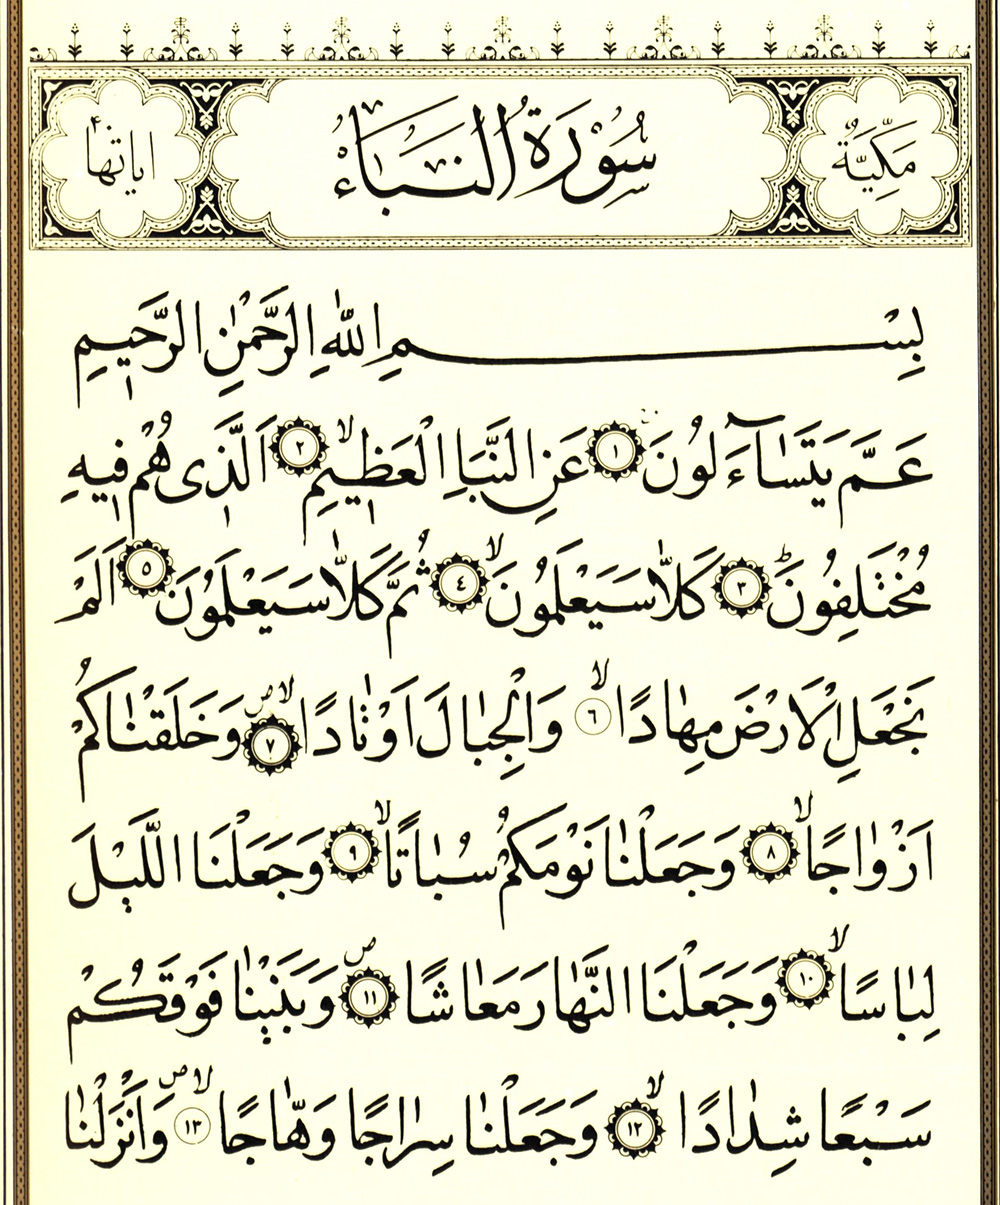 مَكِّيَّةٌ سُورَةُ النَّبَاءِ اياتها ٤٠
بِسْمِ اللّٰهِ الرَّحْمٰنِ الرَّحِيمِ
عَمَّ يَتَسَاۤءَلُونَ ١ عَنِ النَّبَاِ الْعَظِيمِ ۙ ٢ اَلَّذِى هُمْ فِيهِ
مُخْتَلِفُونَ ۜ ٣ كَلَّا سَيَعْلَمُونَ ۙ ٤ ثُمَّ كَلَّا سَيَعْلَمُونَ ٥ اَلَمْ
نَجْعَلِ الْاَرْضَ مِهَادًا ۙ ٦ وَالْجِبَالَ اَوْتَادًا ۙ ٧ وَخَلَقْنَاكُمْ
اَزْوَاجًا ۙ ٨ وَجَعَلْنَا نَوْمَكُمْ سُبَاتًا ۙ ٩ وَجَعَلْنَا اللَّيْلَ
لِبَاسًا ۙ ١٠ وَجَعَلْنَا النَّهَارَ مَعَاشًا ۖ ١١ وَبَنَيْنَا فَوْقَكُمْ
سَبْعًا شِدَادًا ۙ ١٢ وَجَعَلْنَا سِرَاجًا وَهَّاجًا ۙ ١٣ وَاَنْزَلْنَا